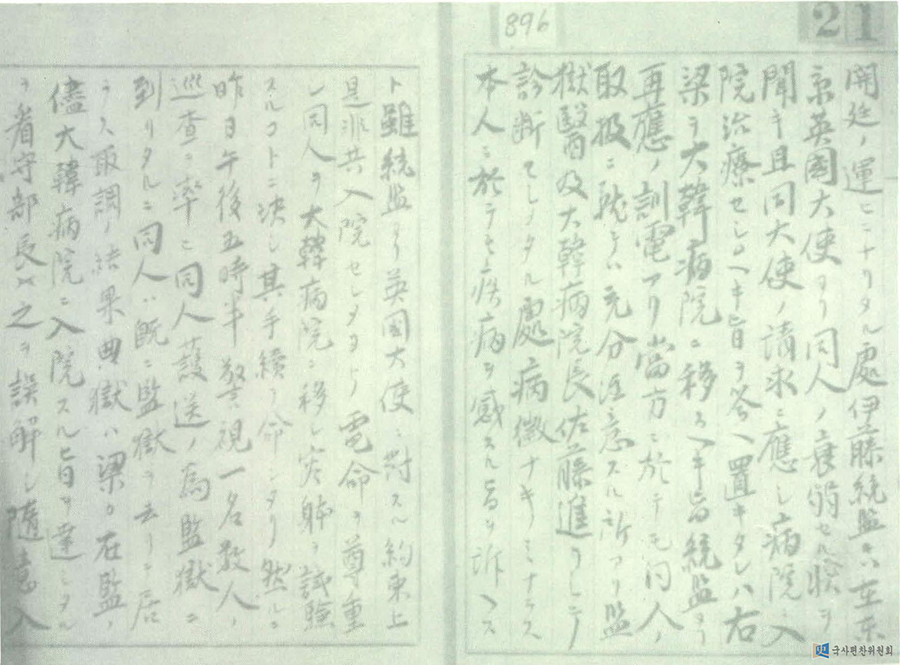 21
896
開廷ノ運ニナリタル處伊藤統監ハ在東
京英國大使ヨリ同人ノ衰弱セル狀ヲ
聞キ且同大使ノ請求ニ應シ病院ニ入
院治療セシムヘキ旨ヲ答ヘ置キタレハ右
梁ヲ大韓病院ニ移スヘキ旨統監ヨリ
再應ノ訓電アリ當方ニ於テモ同人ノ
取扱ニ就テハ充分注意スル所アリ監
獄醫及大韓病院長佐藤進ヲシテ
診斷セシメタル處病徴ナキノミナラス
本人ニ於テモ疾病ヲ感スル旨ヲ訴ヘス
ト雖統監ヨリ英国大使ニ対スル約束上
是非共入院セシメヨトノ電命ヲ尊重
シ同人ヲ大韓病院ニ移シ実躰ヲ試驗
スルコトニ決シ其手續ヲ命シタリ然ルニ
昨日午後五時半警視一名数人ノ
巡査ヲ率ヒ同人護送ノ爲監獄ニ
到リタルニ同人ハ既ニ監獄ヲ去リテ居
ラス取調ノ結果典獄ハ梁ヲ在監ノ
儘大韓病院ニ入院スル旨ヲ達シタル
ヲ看守部長ハ之ヲ誤解シ隨意入
국사편찬위원회